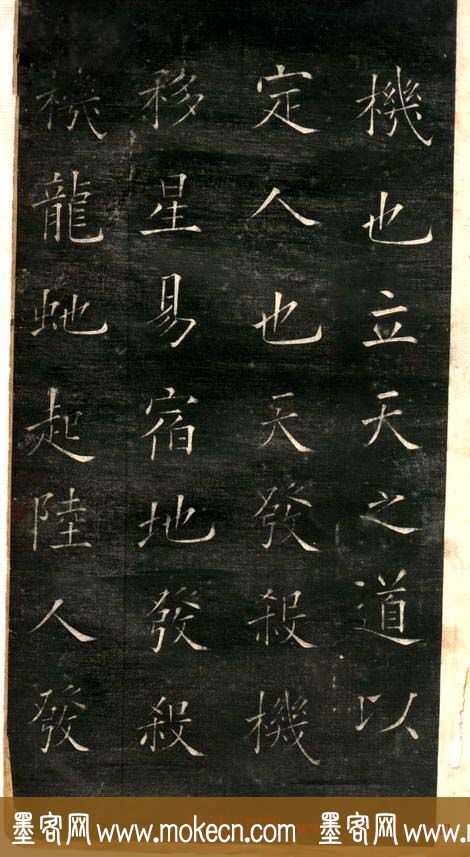 機也立天之道以
定人也天發殺機
移星易宿地發殺
機龍虵起陸人發
墨客网www.mokecn.com 墨客网www.mokecn.com